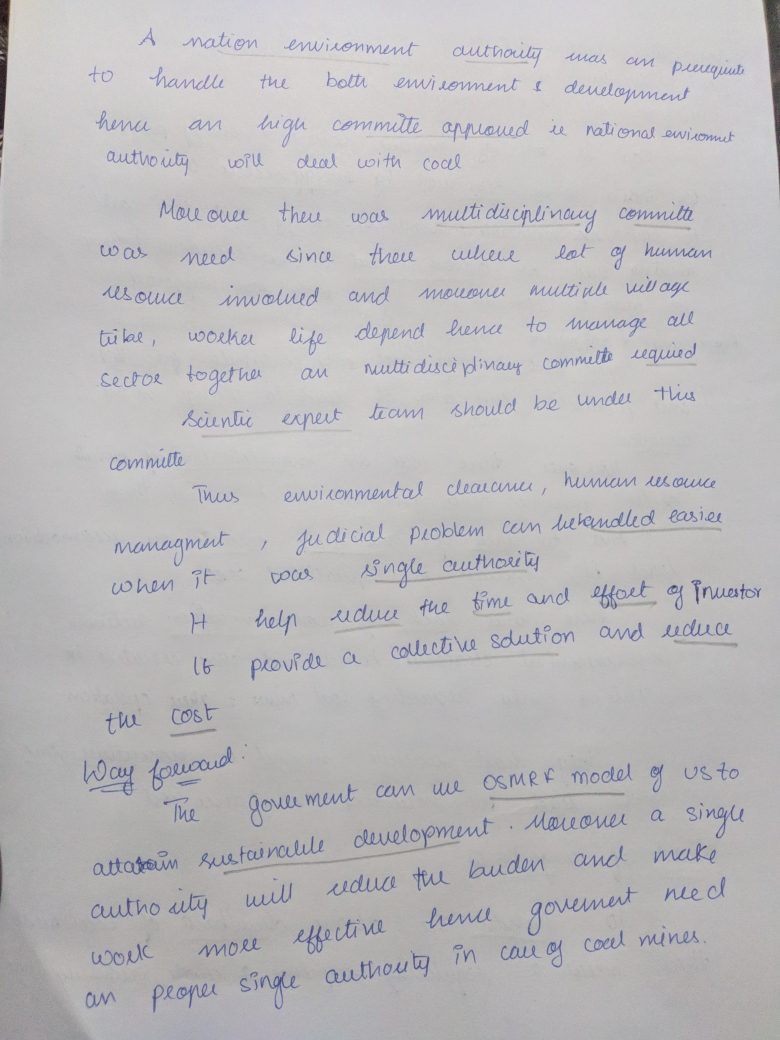 A nation environment authority was an prerequite
to handle the both environment & development
hence an high committe approved ie national enviromet
authority will deal with coal
Moreover there was multidisciplinary committe
was need since there where lot of human
resource involved and moreover multiple village
tribe, worker life depend hence to manage all
sector together an multidisciplinary committe required
Scientic expert team should be under this
committe
Thus environmental clearance, human resource
managment , judicial problem can be handled easier
when it was single authority
It help reduce the time and effort of investor
It provide a collective solution and reduce
the cost
Way forward:
The goverment can use OSMRF model of US to
attain sustainable development. Moreover a single
authority will reduce the burden and make
work more effective hence goverment need
an proper single authority in case of coal mines.